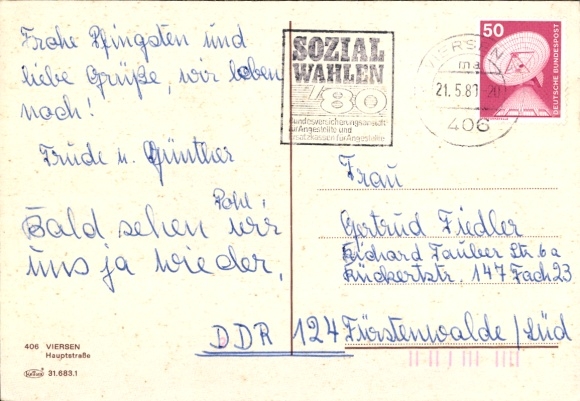 Frohe Pfingsten und
liebe Grüße, wir leben
noch!
Trude u. Günther
Pohl.
Bald sehen wir
uns ja wieder.
406 VIERSEN
Hauptstraße
31.683.1
SOZIAL
WAHLEN
80
Bundesversicherungsanstalt
für Angestellte und
Ersatzkassen für Angestellte
VIERSEN
ma
21.5.80
406
50
DEUTSCHE BUNDESPOST
Frau
Gertrud Fiedler
Richard Tauber Str. 6a
Rückertstr. 147 Fach 23
DDR 124 Fürstenwalde / Süd